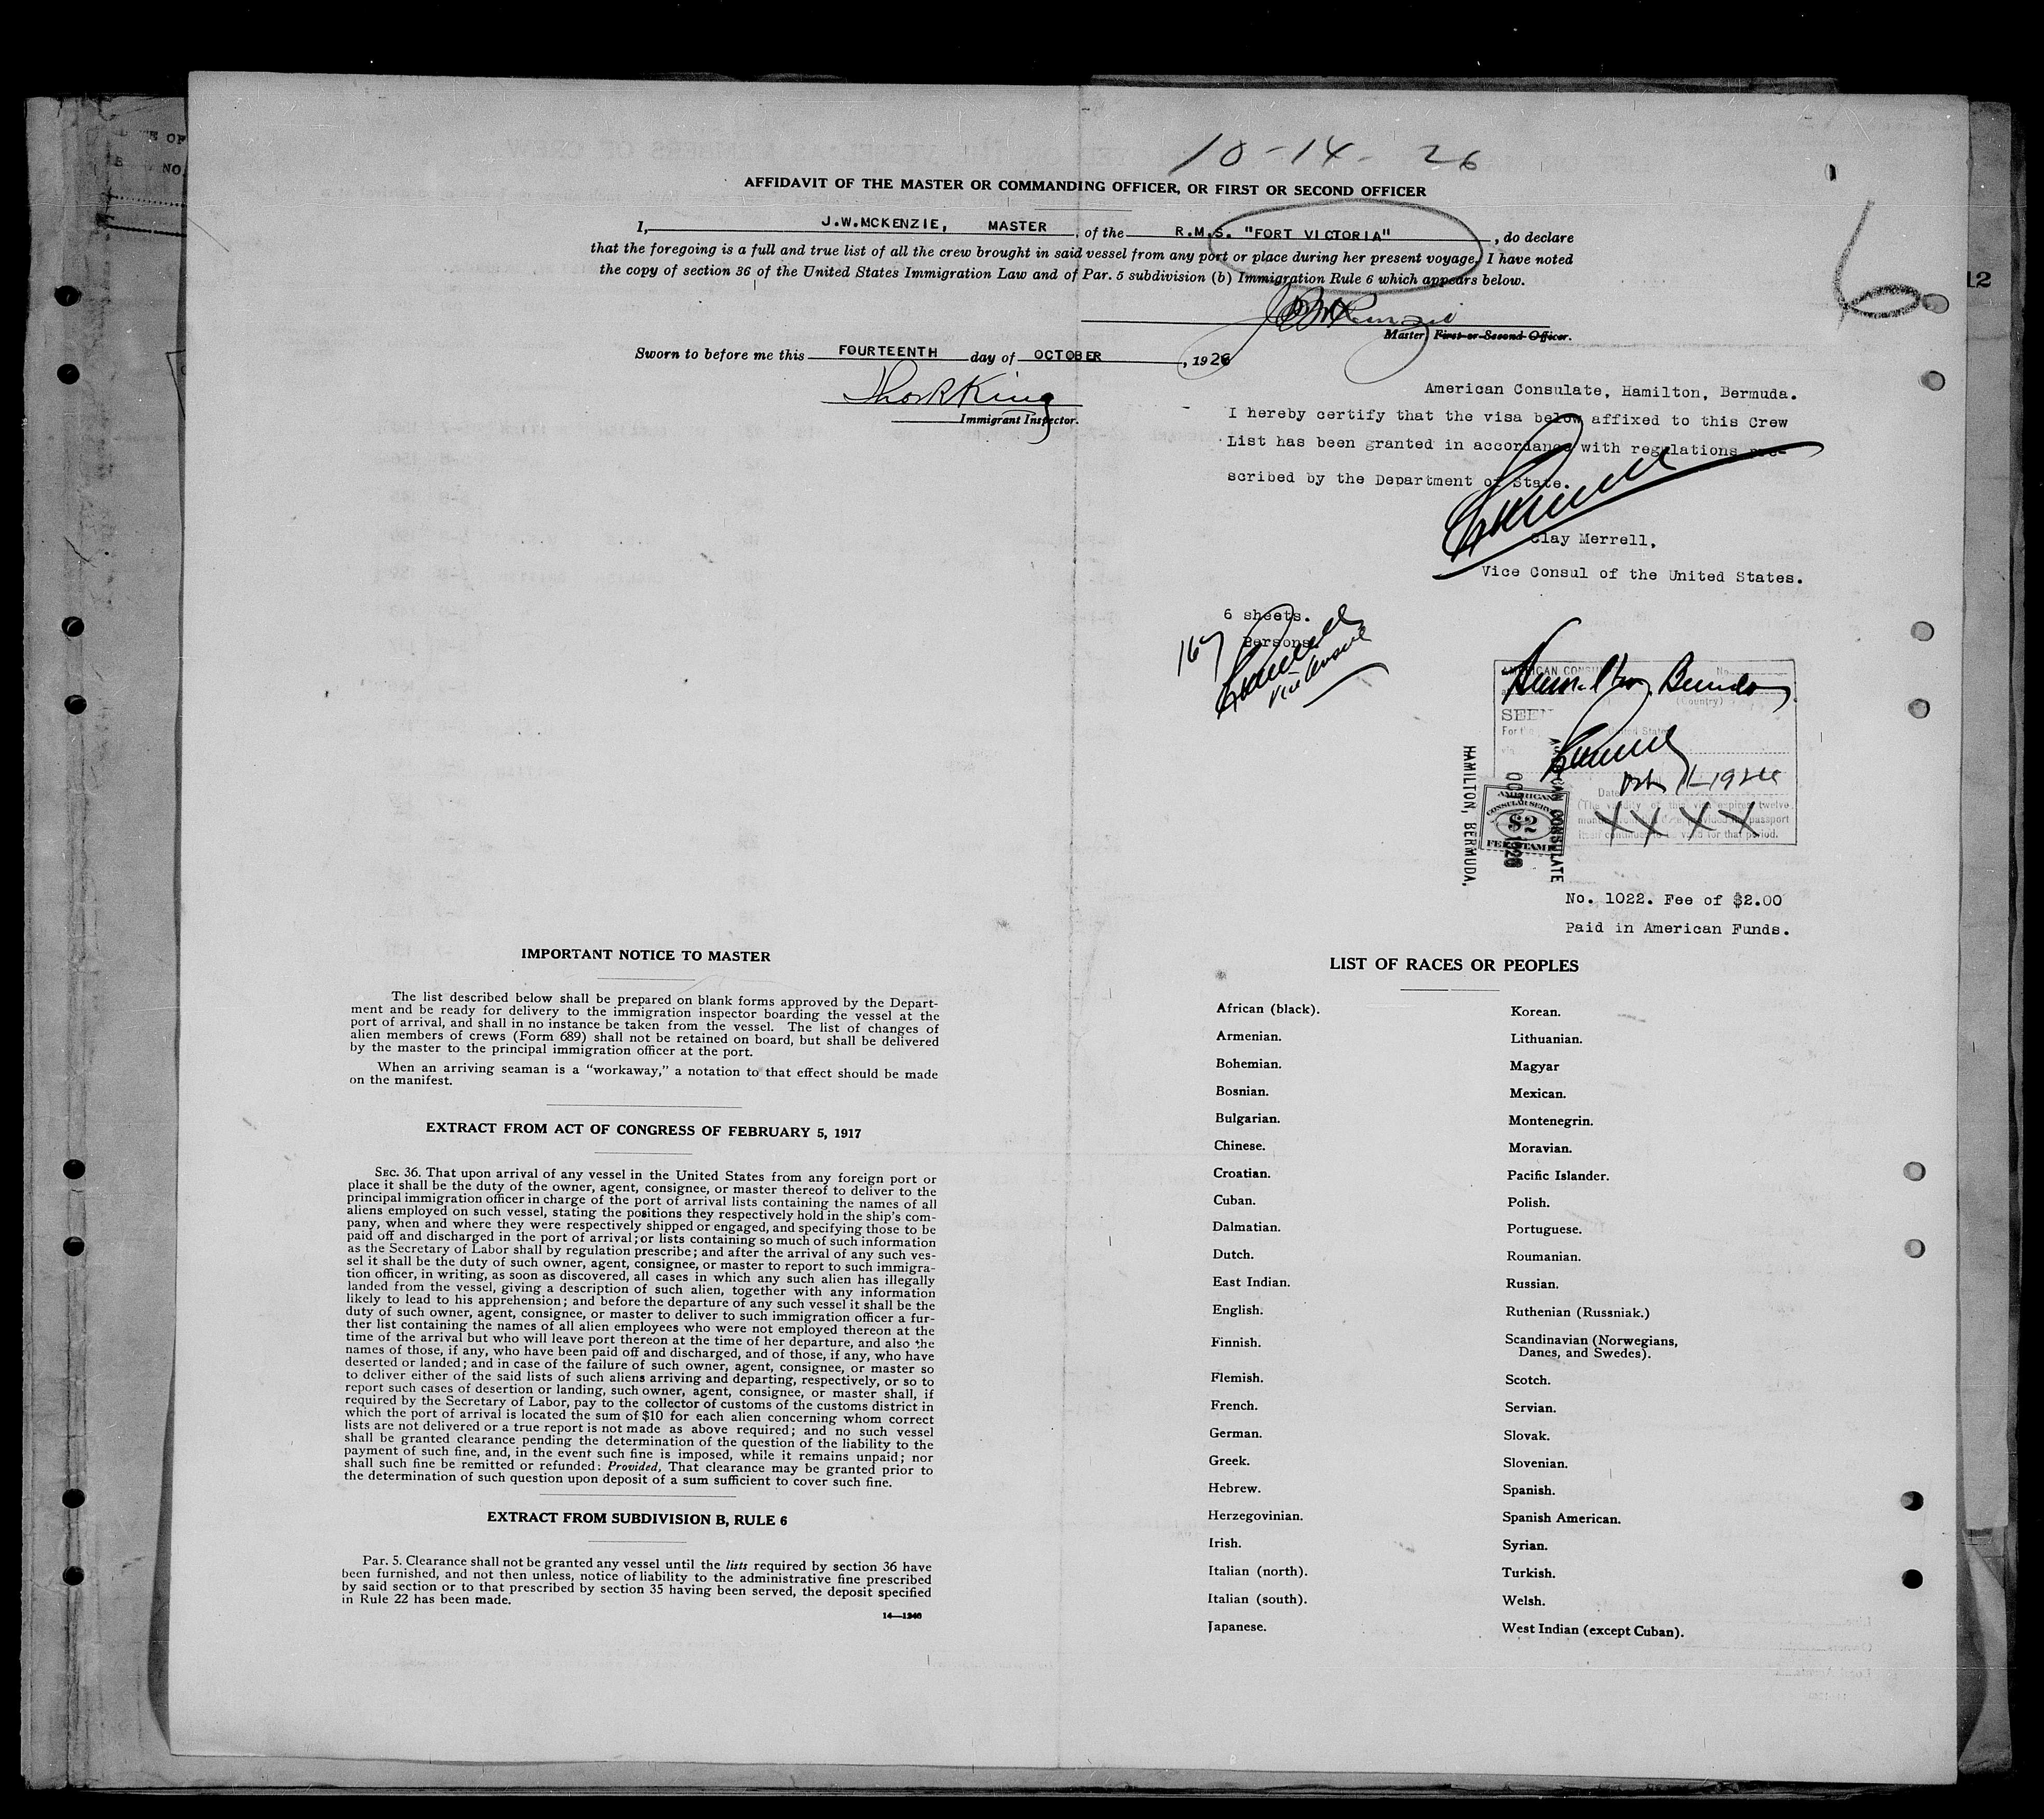 E OF
NO
10-14-26
AFFIDAVIT OF THE MASTER OR COMMANDING OFFICER, OR FIRST OR SECOND OFFICER
I, J.W.MCKENZIE, MASTER, of the R.M.S. "FORT VICTORIA", do declare
that the foregoing is a full and true list of all the crew brought in said vessel from any port or place during her present voyage. I have noted
the copy of section 36 of the United States Immigration Law and of Par. 5 subdivision (b) Immigration Rule 6 which appears below.
Master, First or Second Officer.
6
12
Sworn to before me this FOURTEENTH day of OCTOBER, 1926
King
Immigrant Inspector.
American Consulate, Hamilton, Bermuda.
I hereby certify that the visa below affixed to this Crew
List has been granted in accordance with regulations pre-
scribed by the Department of State.
Clay Merrell,
Vice Consul of the United States.
6 sheets.
167 Persons
Vice Consul
AMERICAN CONSULATE No.
Hamilton, Bermuda
(Country)
SEEN
For the United States
via
Date Oct 11-1926
(The validity of this visa expires twelve
months from this date provided the passport
itself continues to be valid for that period.
XXXX
AMERICAN CONSULATE
OCT 1926
HAMILTON, BERMUDA,
AMERICAN
CONSULAR SERVICE
$2
FEE STAMP
No. 1022. Fee of $2.00
Paid in American Funds.
IMPORTANT NOTICE TO MASTER
The list described below shall be prepared on blank forms approved by the Depart-
ment and be ready for delivery to the immigration inspector boarding the vessel at the
port of arrival, and shall in no instance be taken from the vessel. The list of changes of
alien members of crews (Form 689) shall not be retained on board, but shall be delivered
by the master to the principal immigration officer at the port.
When an arriving seaman is a "workaway," a notation to that effect should be made
on the manifest.
EXTRACT FROM ACT OF CONGRESS OF FEBRUARY 5, 1917
SEC. 36. That upon arrival of any vessel in the United States from any foreign port or
place it shall be the duty of the owner, agent, consignee, or master thereof to deliver to the
principal immigration officer in charge of the port of arrival lists containing the names of all
aliens employed on such vessel, stating the positions they respectively hold in the ship's com-
pany, when and where they were respectively shipped or engaged, and specifying those to be
paid off and discharged in the port of arrival; or lists containing so much of such information
as the Secretary of Labor shall by regulation prescribe; and after the arrival of any such ves-
sel it shall be the duty of such owner, agent, consignee, or master to report to such immigra-
tion officer, in writing, as soon as discovered, all cases in which any such alien has illegally
landed from the vessel, giving a description of such alien, together with any information
likely to lead to his apprehension; and before the departure of any such vessel it shall be the
duty of such owner, agent, consignee, or master to deliver to such immigration officer a fur-
ther list containing the names of all alien employees who were not employed thereon at the
time of the arrival but who will leave port thereon at the time of her departure, and also the
names of those, if any, who have been paid off and discharged, and of those, if any, who have
deserted or landed; and in case of the failure of such owner, agent, consignee, or master so
to deliver either of the said lists of such aliens arriving and departing, respectively, or so to
report such cases of desertion or landing, such owner, agent, consignee, or master shall, if
required by the Secretary of Labor, pay to the collector of customs of the customs district in
which the port of arrival is located the sum of $10 for each alien concerning whom correct
lists are not delivered or a true report is not made as above required; and no such vessel
shall be granted clearance pending the determination of the question of the liability to the
payment of such fine, and, in the event such fine is imposed, while it remains unpaid; nor
shall such fine be remitted or refunded: Provided, That clearance may be granted prior to
the determination of such question upon deposit of a sum sufficient to cover such fine.
EXTRACT FROM SUBDIVISION B, RULE 6
Par. 5. Clearance shall not be granted any vessel until the lists required by section 36 have
been furnished, and not then unless, notice of liability to the administrative fine prescribed
by said section or to that prescribed by section 35 having been served, the deposit specified
in Rule 22 has been made.
14—1240
LIST OF RACES OR PEOPLES
African (black).
Armenian.
Bohemian.
Bosnian.
Bulgarian.
Chinese.
Croatian.
Cuban.
Dalmatian.
Dutch.
East Indian.
English.
Finnish.
Flemish.
French.
German.
Greek.
Hebrew.
Herzegovinian.
Irish.
Italian (north).
Italian (south).
Japanese.
Korean.
Lithuanian.
Magyar
Mexican.
Montenegrin.
Moravian.
Pacific Islander.
Polish.
Portuguese.
Roumanian.
Russian.
Ruthenian (Russniak.)
Scandinavian (Norwegians,
Danes, and Swedes).
Scotch.
Servian.
Slovak.
Slovenian.
Spanish.
Spanish American.
Syrian.
Turkish.
Welsh.
West Indian (except Cuban).